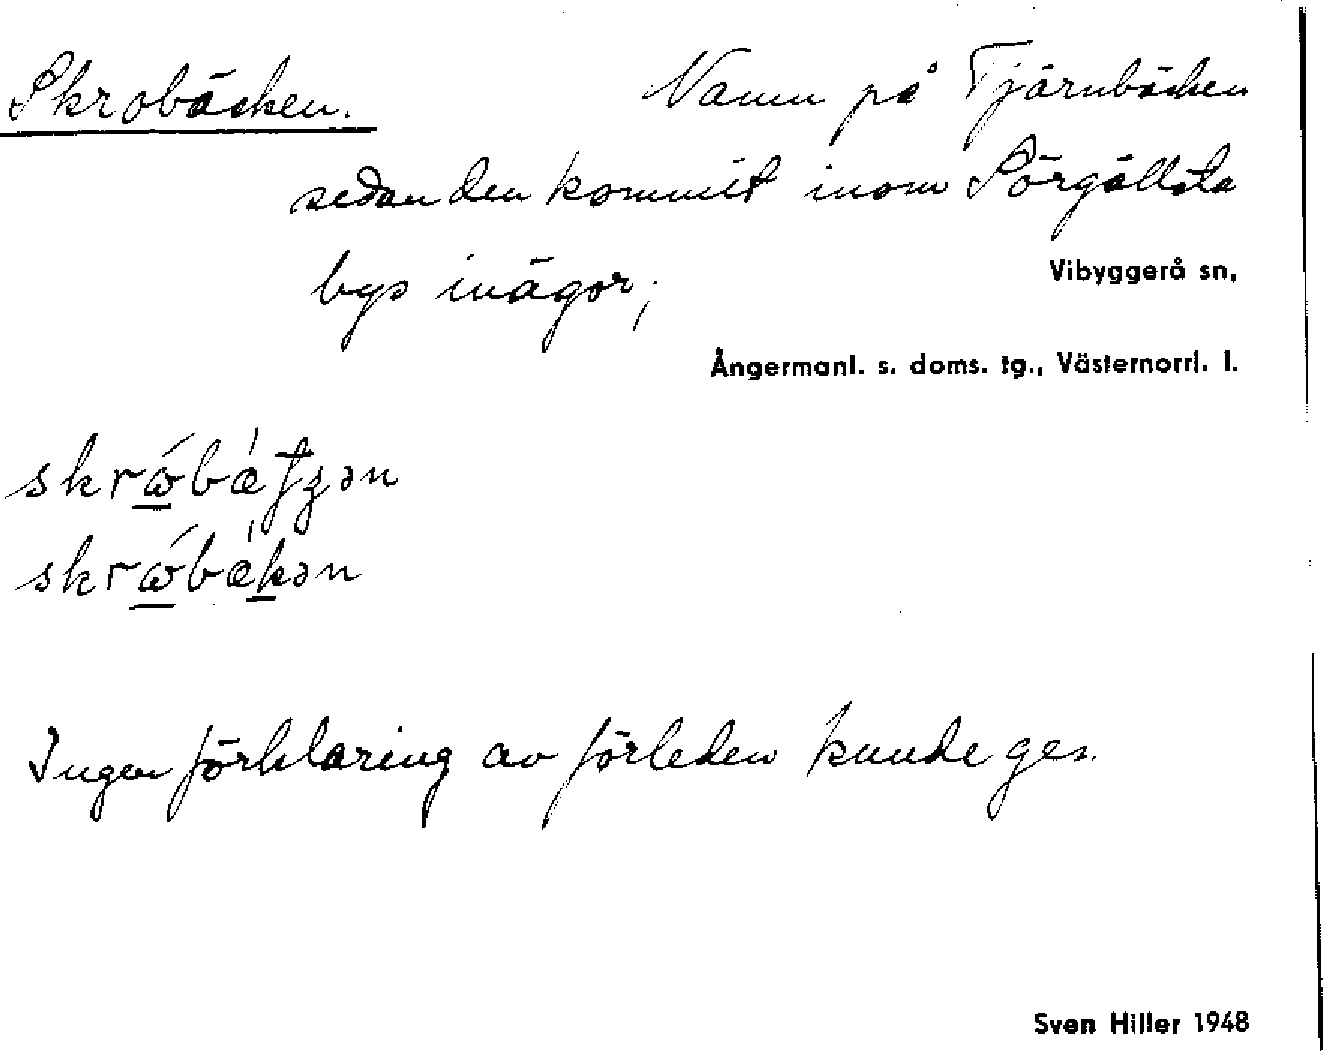 Skrobäcken. Namn på Tjärnbäcken
sedan den kommit inom Sörgällsta
bys inägor;
Vibyggerå sn,
Ångermanl. s. doms. tg., Västernorrl. l.
Ingen förklaring av förleden kunde ges.
Sven Hiller 1948